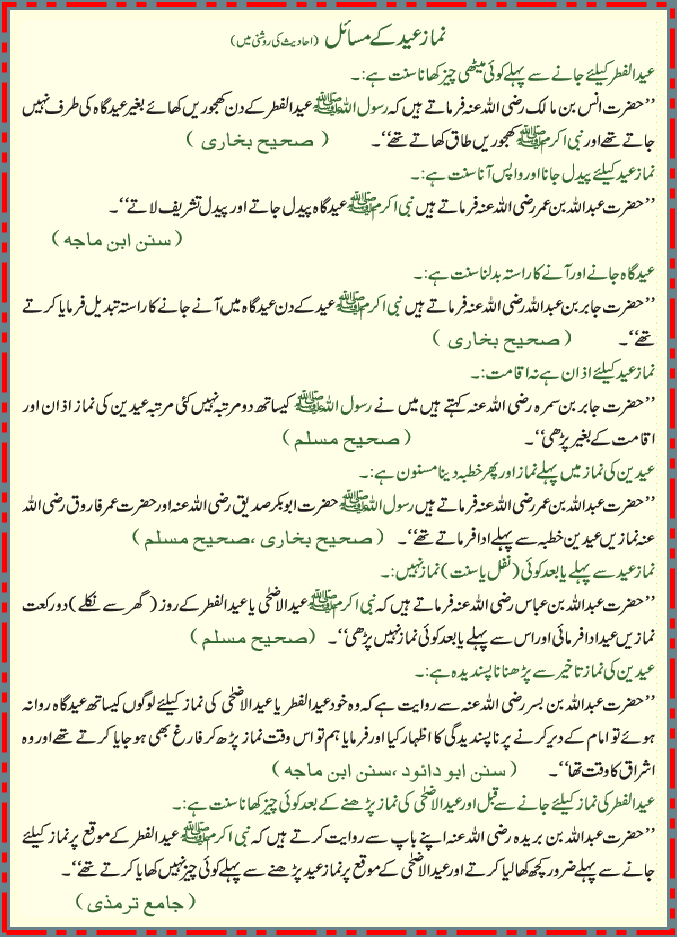 نماز عید کے مسائل (احادیث کی روشنی میں)
عید الفطر کیلئے جانے سے پہلے کوئی میٹھی چیز کھانا سنت ہے:۔
’’حضرت انس بن مالک رضی اللہ عنہ فرماتے ہیں کہ رسول اللہ ﷺ عید الفطر کے دن کھجوریں کھائے بغیر عید گاہ کی طرف نہیں
جاتے تھے اور نبی اکرم ﷺ کھجوریں طاق کھاتے تھے‘‘۔ ( صحیح بخاری )
نماز عید کیلئے پیدل جانا اور واپس آنا سنت ہے:۔
’’حضرت عبداللہ بن عمر رضی اللہ عنہ فرماتے ہیں نبی اکرم ﷺ عید گاہ پیدل جاتے اور پیدل تشریف لاتے‘‘۔
(سنن ابن ماجه )
عید گاہ جانے اور آنے کا راستہ بدلنا سنت ہے:۔
’’حضرت جابر بن عبداللہ رضی اللہ عنہ فرماتے ہیں نبی اکرم ﷺ عید کے دن عید گاہ میں آنے جانے کا راستہ تبدیل فرمایا کرتے
تھے‘‘۔ ( صحیح بخاری )
نماز عید کیلئے اذان ہے نہ اقامت:۔
’’حضرت جابر بن سمرہ رضی اللہ عنہ کہتے ہیں میں نے رسول اللہ ﷺ کیساتھ دو مرتبہ نہیں کئی مرتبہ عیدین کی نماز اذان اور
اقامت کے بغیر پڑھی‘‘۔ (صحیح مسلم )
عیدین کی نماز میں پہلے نماز اور پھر خطبہ دینا مسنون ہے:۔
’’حضرت عبداللہ بن عمر رضی اللہ عنہ فرماتے ہیں رسول اللہ ﷺ حضرت ابوبکر صدیق رضی اللہ عنہ اور حضرت عمر فاروق رضی اللہ
عنہ نمازیں عیدین خطبہ سے پہلے ادا فرماتے تھے‘‘۔ ( صحیح بخاری ،صحیح مسلم )
نماز عید سے پہلے یا بعد کوئی (نفل یا سنت) نماز نہیں:۔
’’حضرت عبداللہ بن عباس رضی اللہ عنہ فرماتے ہیں کہ نبی اکرم ﷺ عید الاضحٰی یا عید الفطر کے روز (گھر سے نکلے) دو رکعت
نمازیں عید ادا فرمائی اور اس سے پہلے یا بعد کوئی نماز نہیں پڑھی‘‘۔ (صحیح مسلم )
عیدین کی نماز تاخیر سے پڑھنا ناپسندیدہ ہے:۔
’’حضرت عبداللہ بن بسر رضی اللہ عنہ سے روایت ہے کہ وہ خود عید الفطر یا عید الاضحٰی کی نماز کیلئے لوگوں کیساتھ عید گاہ روانہ
ہوئے تو امام کے دیر کرنے پر ناپسندیدگی کا اظہار کیا اور فرمایا ہم تو اس وقت نماز پڑھ کر فارغ بھی ہو جایا کرتے تھے اور وہ
اشراق کا وقت تھا‘‘۔ ( سنن ابو دائود ،سنن ابن ماجه )
عید الفطر کی نماز کیلئے جانے سے قبل اور عید الاضحٰی کی نماز پڑھنے کے بعد کوئی چیز کھانا سنت ہے:۔
’’حضرت عبداللہ بن بریدہ رضی اللہ عنہ اپنے باپ سے روایت کرتے ہیں کہ نبی اکرم ﷺ عید الفطر کے موقع پر نماز کیلئے
جانے سے پہلے ضرور کچھ کھا لیا کرتے اور عید الاضحٰی کے موقع پر نماز عید پڑھنے سے پہلے کوئی چیز نہیں کھایا کرتے تھے‘‘۔
(جامع ترمذی )